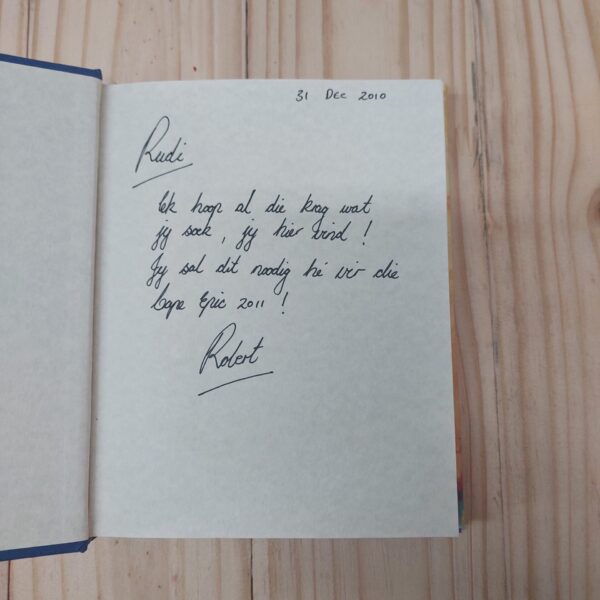 31 Dec 2010
Rudi
Ek hoop al die krag wat
jy soek, jy hier vind!
Jy sal dit noodig hê vir die
Cape Epic 2011!
Robert